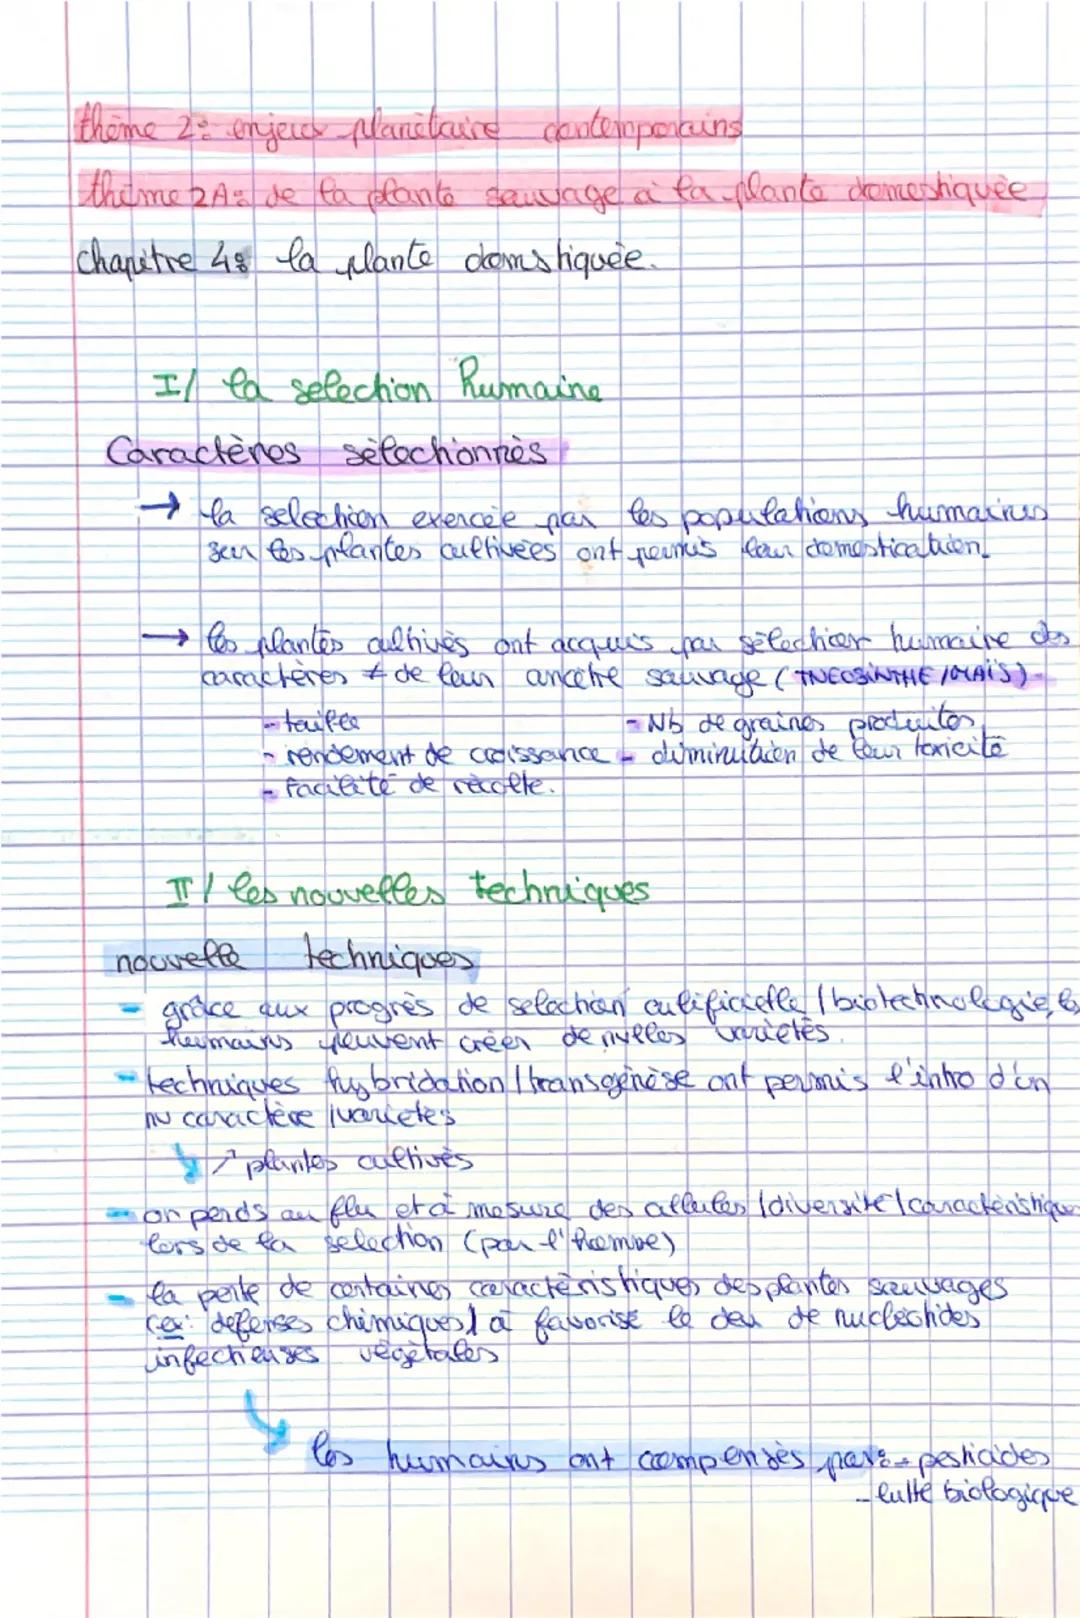 thème 2: enjeux planétaire contemporains
thème 2A: de la plante sauvage à la plante domestiquée
chapitre 4: la plante domstiquée.
I/ la selection humaine
Caractères sélectionnés
→ la selection exercée par les populations humaines
sur les plantes cultivées ont permis leur domestication.
→ les plantes cultivés ont acquis par sélection humaine des
caractères ≠ de leur ancêtre sauvage (TNEOSINTHE/MAÏS).
- taille - Nb de graines produites
- rendement de croissance - diminution de leur toxicité
- facilité de récolte.
II/ les nouvelles techniques
nouvelle techniques
- grâce aux progrès de selection artificielle / biotechnologie, les
humains peuvent créer de nvlles variétés.
- techniques hybridation / transgénèse ont permis l'intro d'un
nv caractère / varietes
↗ plantes cultivés
- on perds au flu et à mesure des allèles / diversité / caractéristiques
lors de la selection (par l'homme)
- la perte de certaines caractéristiques des plantes sauvages
(ex: défenses chimiques) a favorisé le dev de
infectieuses végétales
les humains ont compensés par: - pesticides
- lutte biologique